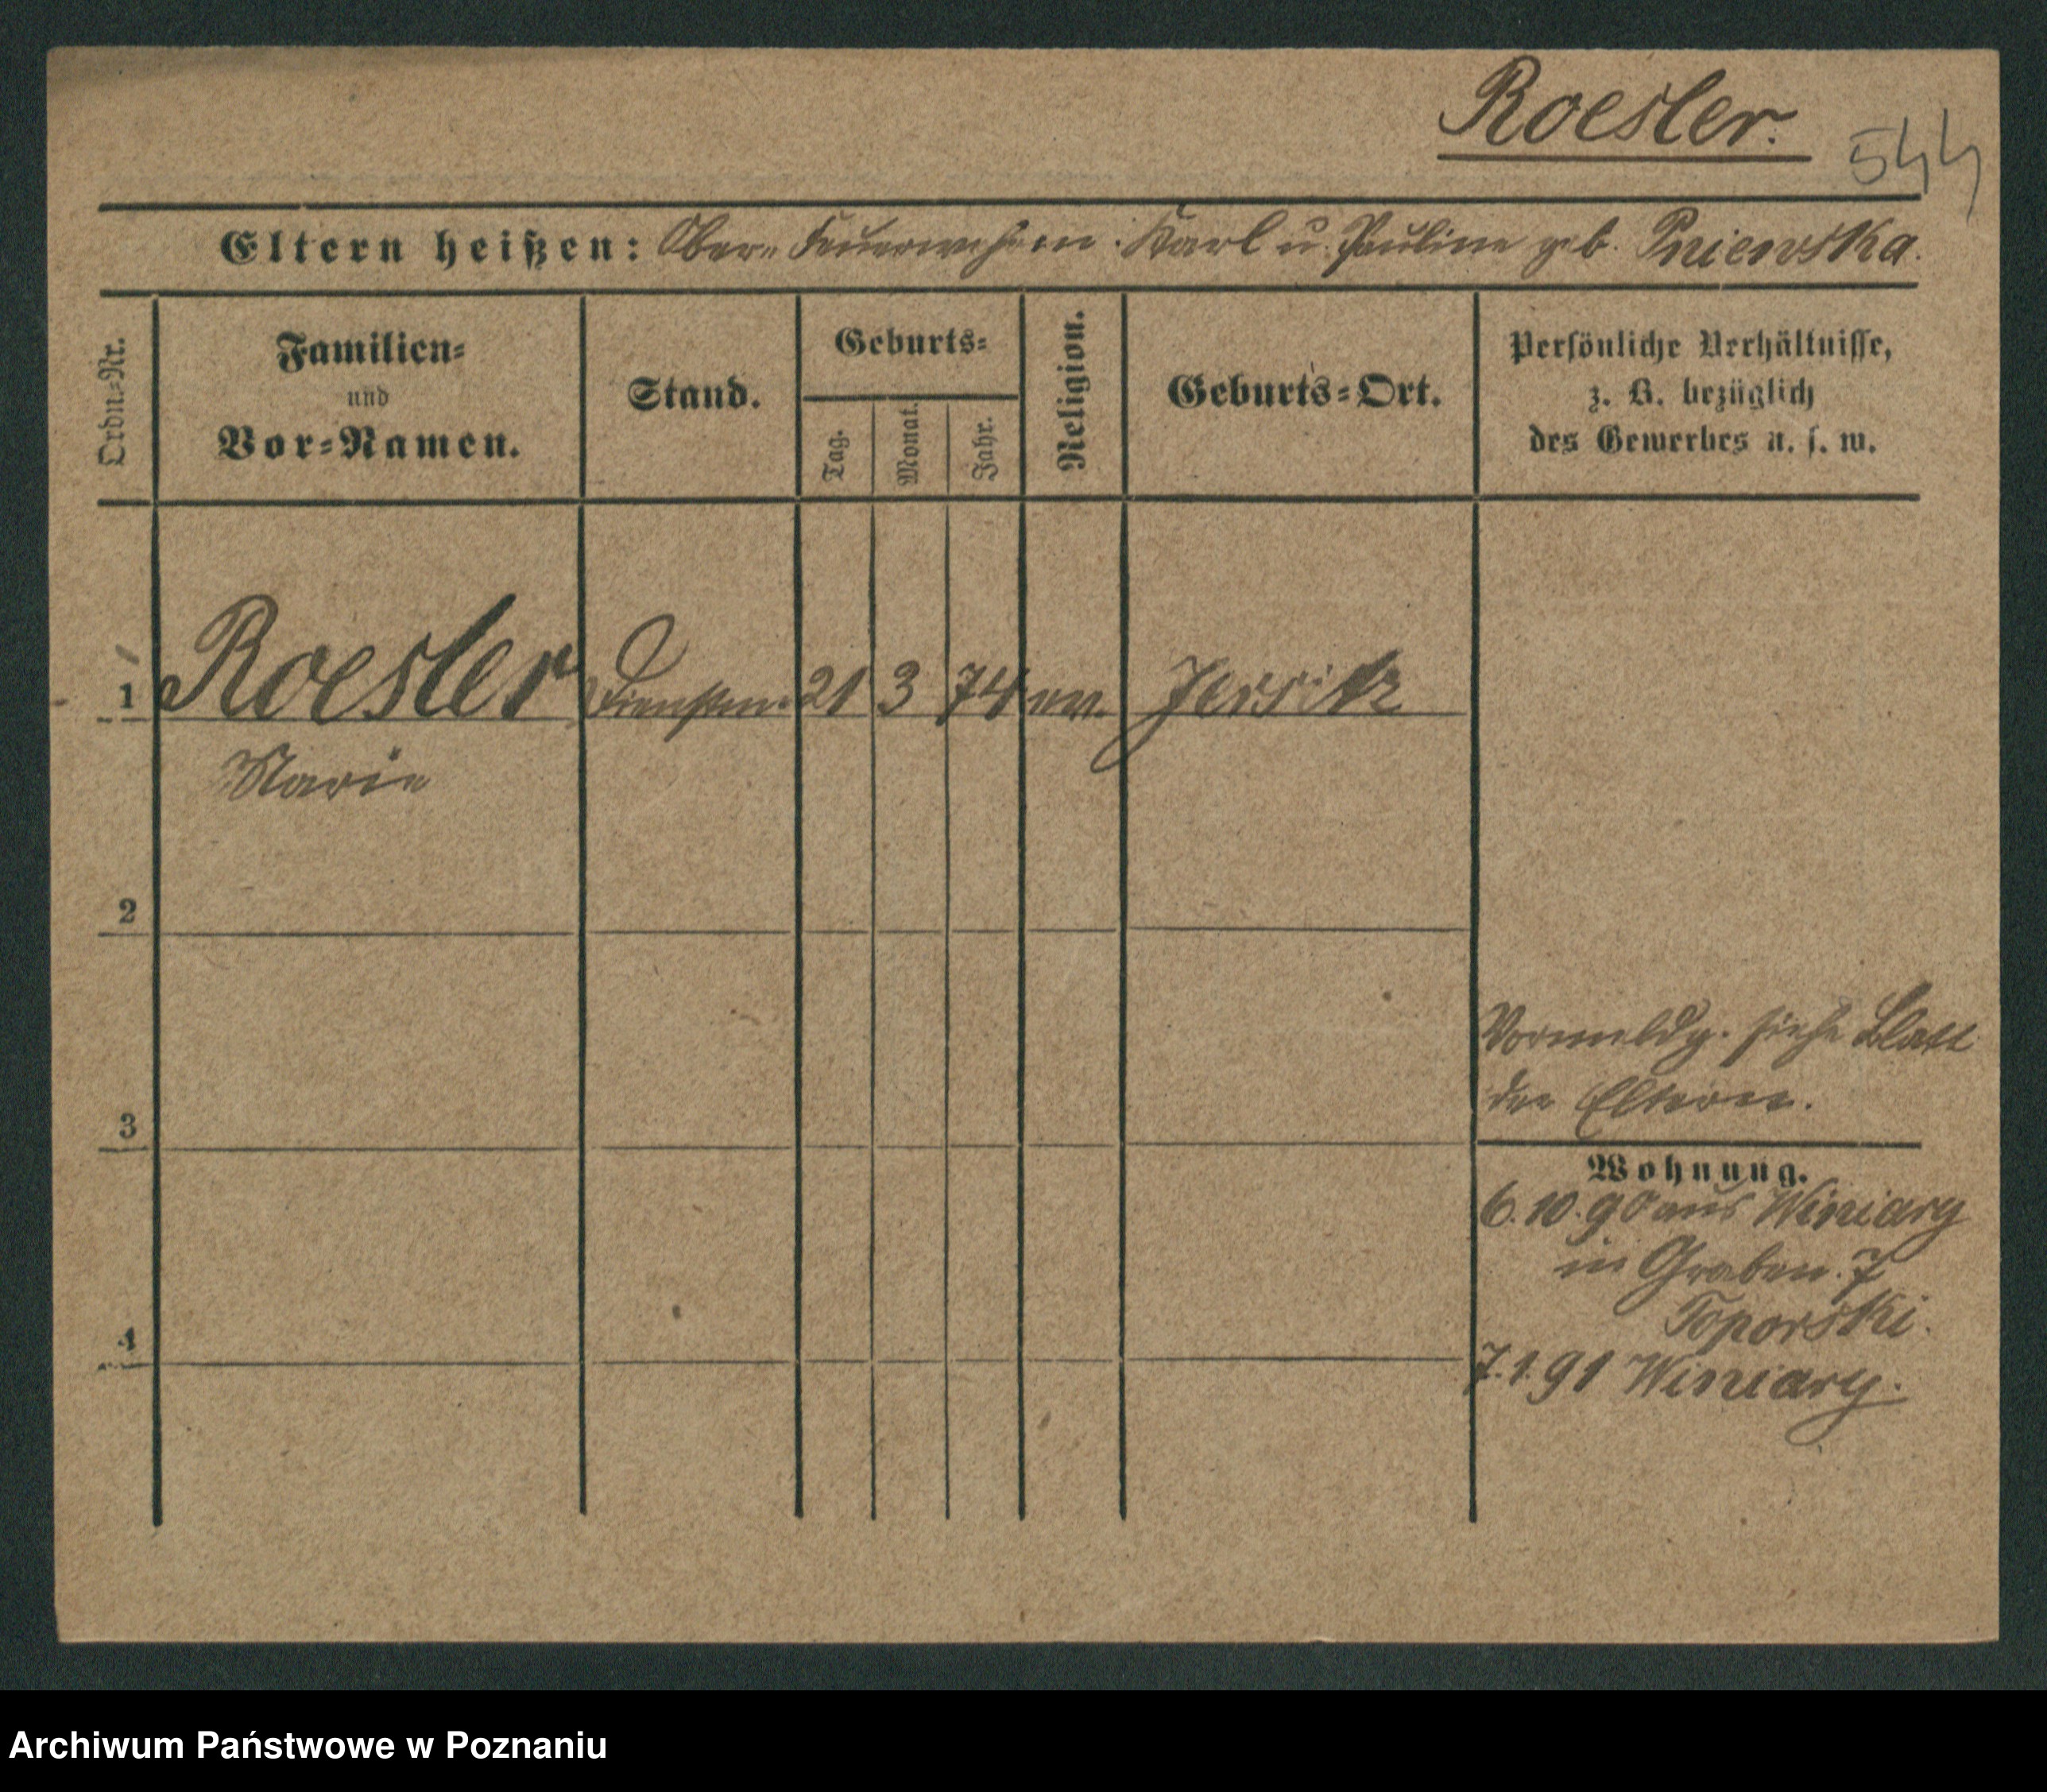 Roesler.
544
Eltern heißen: Ober-Feuerwehrm. Karl u. Pauline geb. Pniewska.
Ordn.-Nr.
Familien-
und
Vor-Namen.
Stand.
Geburts-
Tag.
Monat.
Jahr.
Religion.
Geburts-Ort.
Persönliche Verhältnisse,
z. B. bezüglich
des Gewerbes u. s. w.
1 Roesler Dienstm. 21 3 74 ev. Jersitz
Marie
2
3
4
Vormeldg. siehe Blatt
der Eltern.
Wohnung.
6.10.90 aus Winiary
in Graben 7
Toporski.
7.1.91 Winiary.
Archiwum Państwowe w Poznaniu